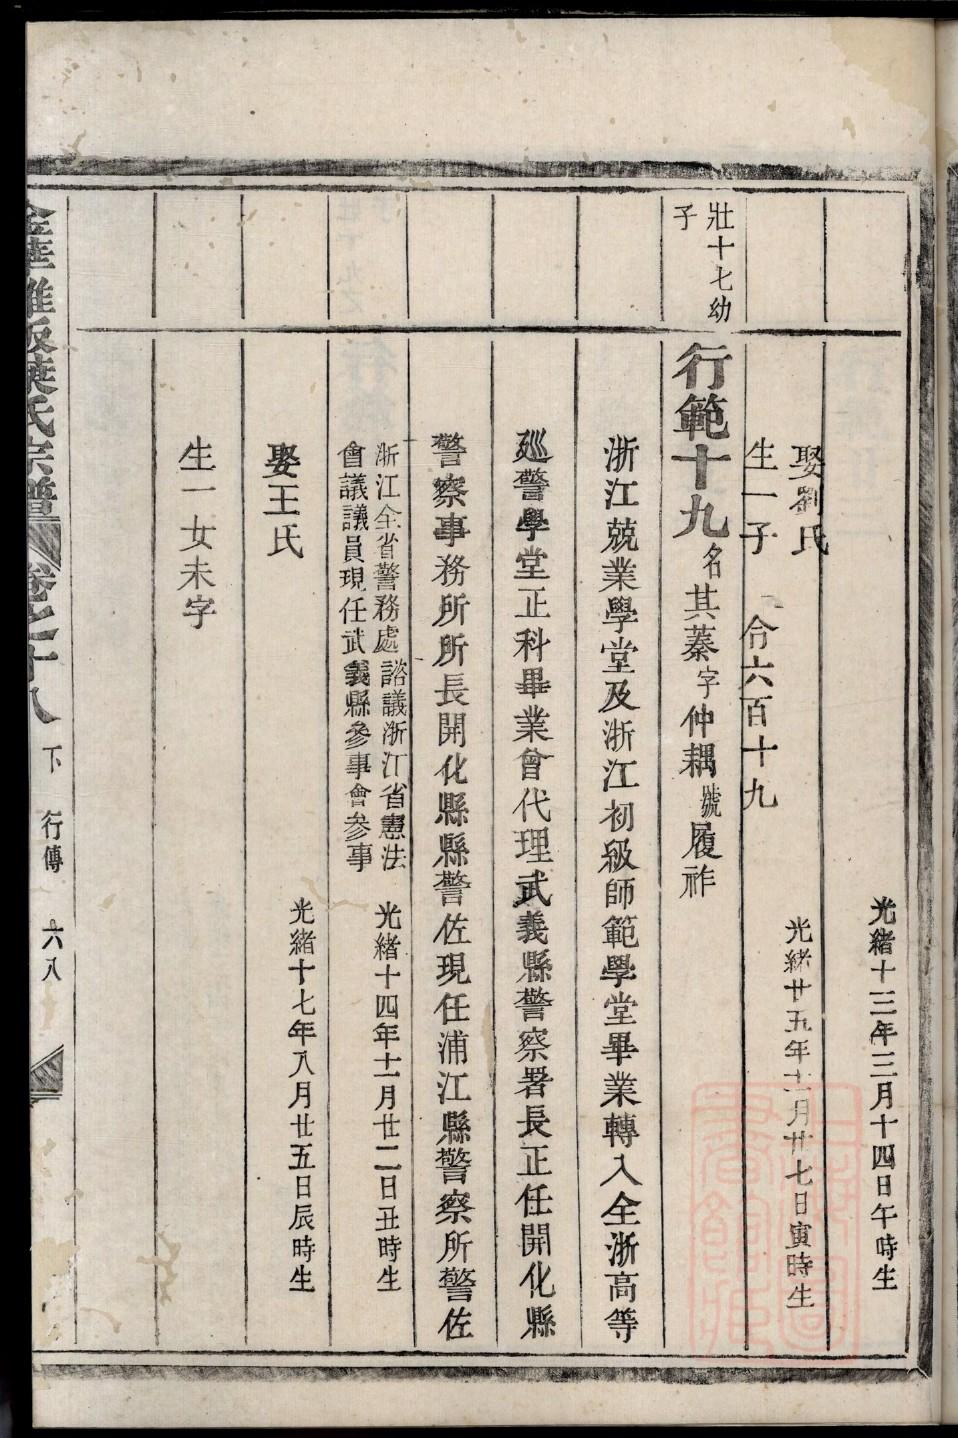 光緒十三年三月十四日午時生
娶劉氏
光緒廿五年十一月廿七日寅時生
生一子
令六百十九
壯十七幼
子
行範十九名其蓁字仲耦號履祚
浙江兢業學堂及浙江初級師範學堂畢業轉入全浙高等
廵警學堂正科畢業曾代理武義縣警察署長正任開化縣
警察事務所所長開化縣縣警佐現任浦江縣警察所警佐
浙江全省警務處諮議浙江省憲法
會議議員現任武義縣參事會參事
光緒十四年十一月廿二日丑時生
娶王氏
光緒十七年八月廿五日辰時生
生一女未字
金華雅畈葉氏宗譜
卷之十八
下
行傳
六八